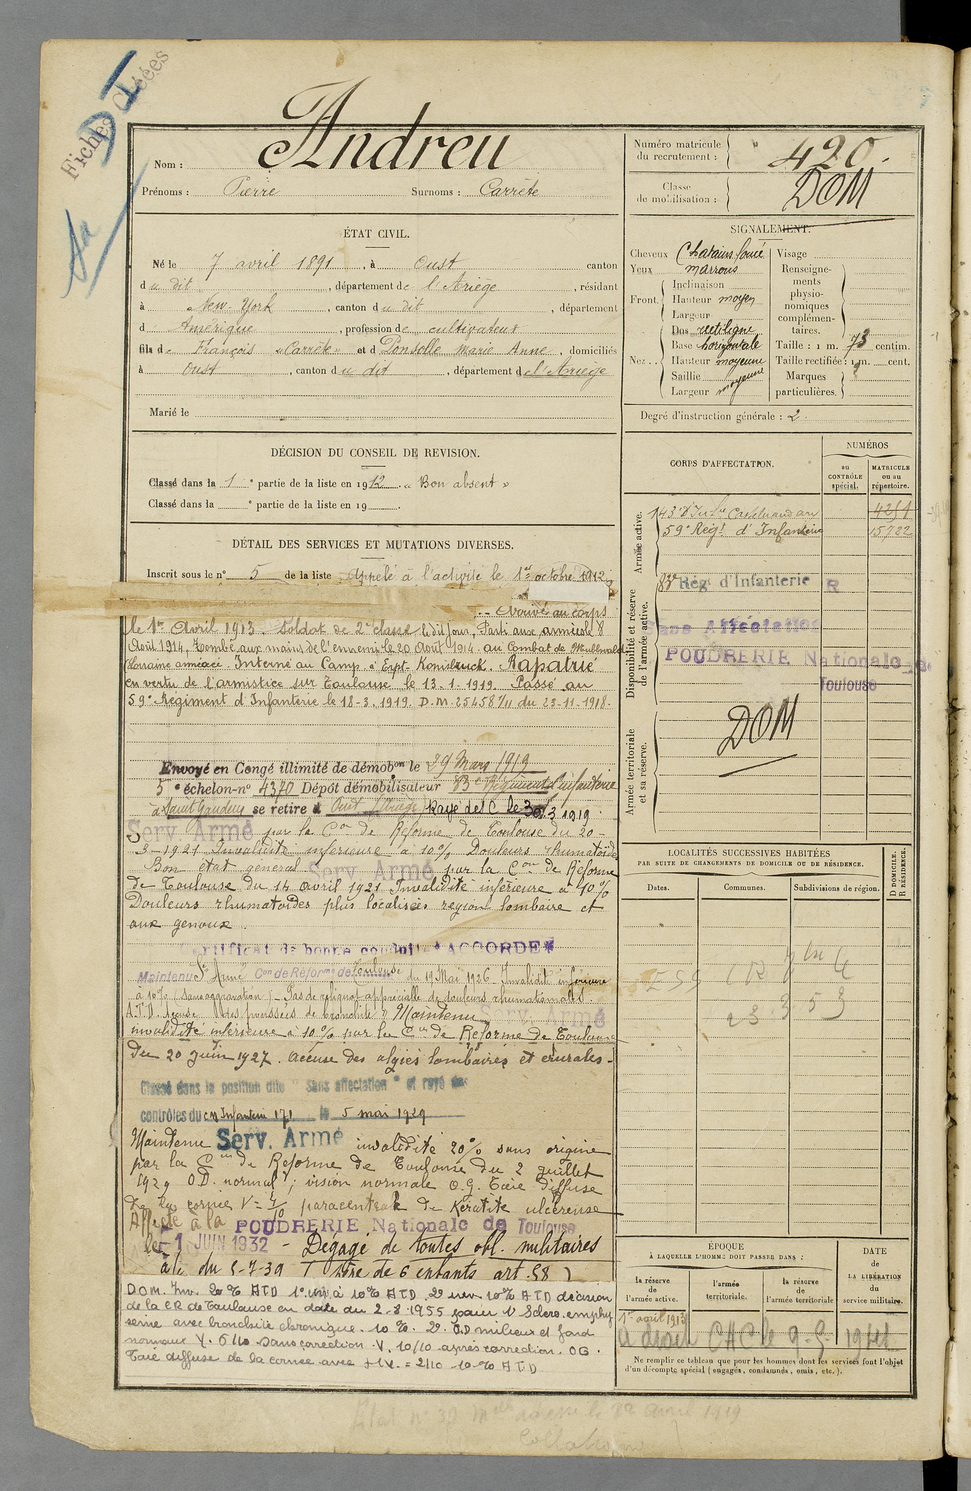 Fiches
Andreu
Nom :
Prénoms : Pierre Surnoms : Carrète
ÉTAT CIVIL.
Né le 7 avril 1891, à Oust canton
du dit, département de l'Ariège, résidant
à New-York, canton du dit, département
d Amérique, profession de cultivateur
fils de François "Carrète" et de Ponsolle Marie Anne, domiciliés
à Oust, canton du dit, département de l'Ariège
Marié le
DÉCISION DU CONSEIL DE REVISION.
Classé dans la 1e partie de la liste en 1912. « Bon absent »
Classé dans la e partie de la liste en 19 .
DÉTAIL DES SERVICES ET MUTATIONS DIVERSES.
Inscrit sous le n° 5 de la liste Appelé à l'activité le 1er octobre 1912
Arrivé au corps
le 1er Avril 1913. Soldat de 2e classe le dit jour, Parti aux armées le 8
Août 1914. Tombé aux mains de l'ennemi le 20 Août 1914 au Combat de
Lorraine annexée. Interné au Camp d' Rapatrié
en vertu de l'armistice sur Toulouse le 13-1-1919. Passé au
59e Régiment d'Infanterie le 18-3-1919. D.M. 25458/11 du 23-11-1918.
Envoyé en Congé illimité de démobon le 29 Mars 1919
5e échelon-n° 4370 Dépôt démobilisateur 83e Régiment d'Infanterie
à Saint Gaudens se retire à Oust (Ariège) Rayé des C. le 30/3 1919
Serv. Armé par la Con de Réforme de Toulouse du 20-
3-1921 Invalidité inférieure à 10% Douleurs rhumatoïdes
Bon état général Serv. Armé par la Con de Réforme
de Toulouse du 14 avril 1921 Invalidité inférieure à 10%
Douleurs rhumatoïdes plus localisées région lombaire et
aux genoux.
Certificat de bonne conduite "ACCORDÉ"
Maintenu Sce Armé Con de Réforme de Toulouse du 19 Mai 1926 Invalidité inférieure
à 10% (sans aggravation) - Pas de reliquat appréciable de douleurs rhumatismales.
Accuse des poussées de bronchite. Maintenu Serv. Armé
invalidité inférieure à 10% par la Con de Réforme de Toulouse
du 20 Juin 1927. Accuse des algies lombaires et crurales.
Classé dans la position dite " sans affectation " et rayé des
contrôles du cm Infanterie 171 le 5 mai 1929
Maintenu Serv. Armé invalidité 20% sans origine
par la Con de Réforme de Toulouse du 2 Juillet
1929 O.D. normal ; vision normale O.G. Taie diffuse
de la cornée V = paracentrale de Kératite ulcéreuse
Affecté à la POUDRERIE Nationale de Toulouse
le -1 JUIN 1932 - Dégagé de toutes obl. militaires
à le du 5-7-39 Titre de 6 enfants art. 58
D.O.M. Inv. 20% ATD 1° inv. à 10% ATD 2° inv 10% ATD décision
de la CR de Toulouse en date du 2-3-1955 pour 1° Scléro. emphy
sème avec bronchite chronique. 10%. 2°. O.D milieux et fond
normaux V. 6/10 sans correction. V. 10/10 après correction. OG.
Taie diffuse de la cornée avec V. = 2/10 10% ATD
Numéro matricule
du recrutement : 420.
Classe
de mobilisation : DOM
SIGNALEMENT.
Cheveux Chatains foncé
Yeux marrons
Front. Inclinaison
Hauteur moyen
Largeur
Nez. Dos rectiligne
Base horizontale
Hauteur moyenne
Saillie
Largeur moyenne
Visage
Renseigne-
ments
physio-
nomiques
complémen-
taires.
Taille : 1 m. 73 centim.
Taille rectifiée : 1 m. cent.
Marques
particulières.
Degré d'instruction générale : 2
CORPS D'AFFECTATION.
NUMÉROS
au
CONTRÔLE
spécial.
MATRICULE
ou au
répertoire.
Armée active.
143e d'Infie Castelnaudary 4251
59e Régt d'Infanterie 15722
Disponibilité et réserve
de l'armée active.
83e Régt d'Infanterie R
Sans Affectation
POUDRERIE Nationale de
Toulouse
Armée territoriale
et sa réserve.
DOM
LOCALITÉS SUCCESSIVES HABITÉES
PAR SUITE DE CHANGEMENTS DE DOMICILE OU DE RÉSIDENCE.
Dates.
Communes.
Subdivisions de région.
D DOMICILE.
R RÉSIDENCE.
23 3 53
ÉPOQUE
À LAQUELLE L'HOMME DOIT PASSER DANS :
la réserve
de
l'armée active.
l'armée
territoriale.
la réserve
de
l'armée territoriale
DATE
de
LA LIBÉRATION
du
service militaire.
1er avril 1913
CAC le 9-5-1944
Ne remplir ce tableau que pour les hommes dont les services font l'objet
d'un décompte spécial (engagés, condamnés, omis, etc.).